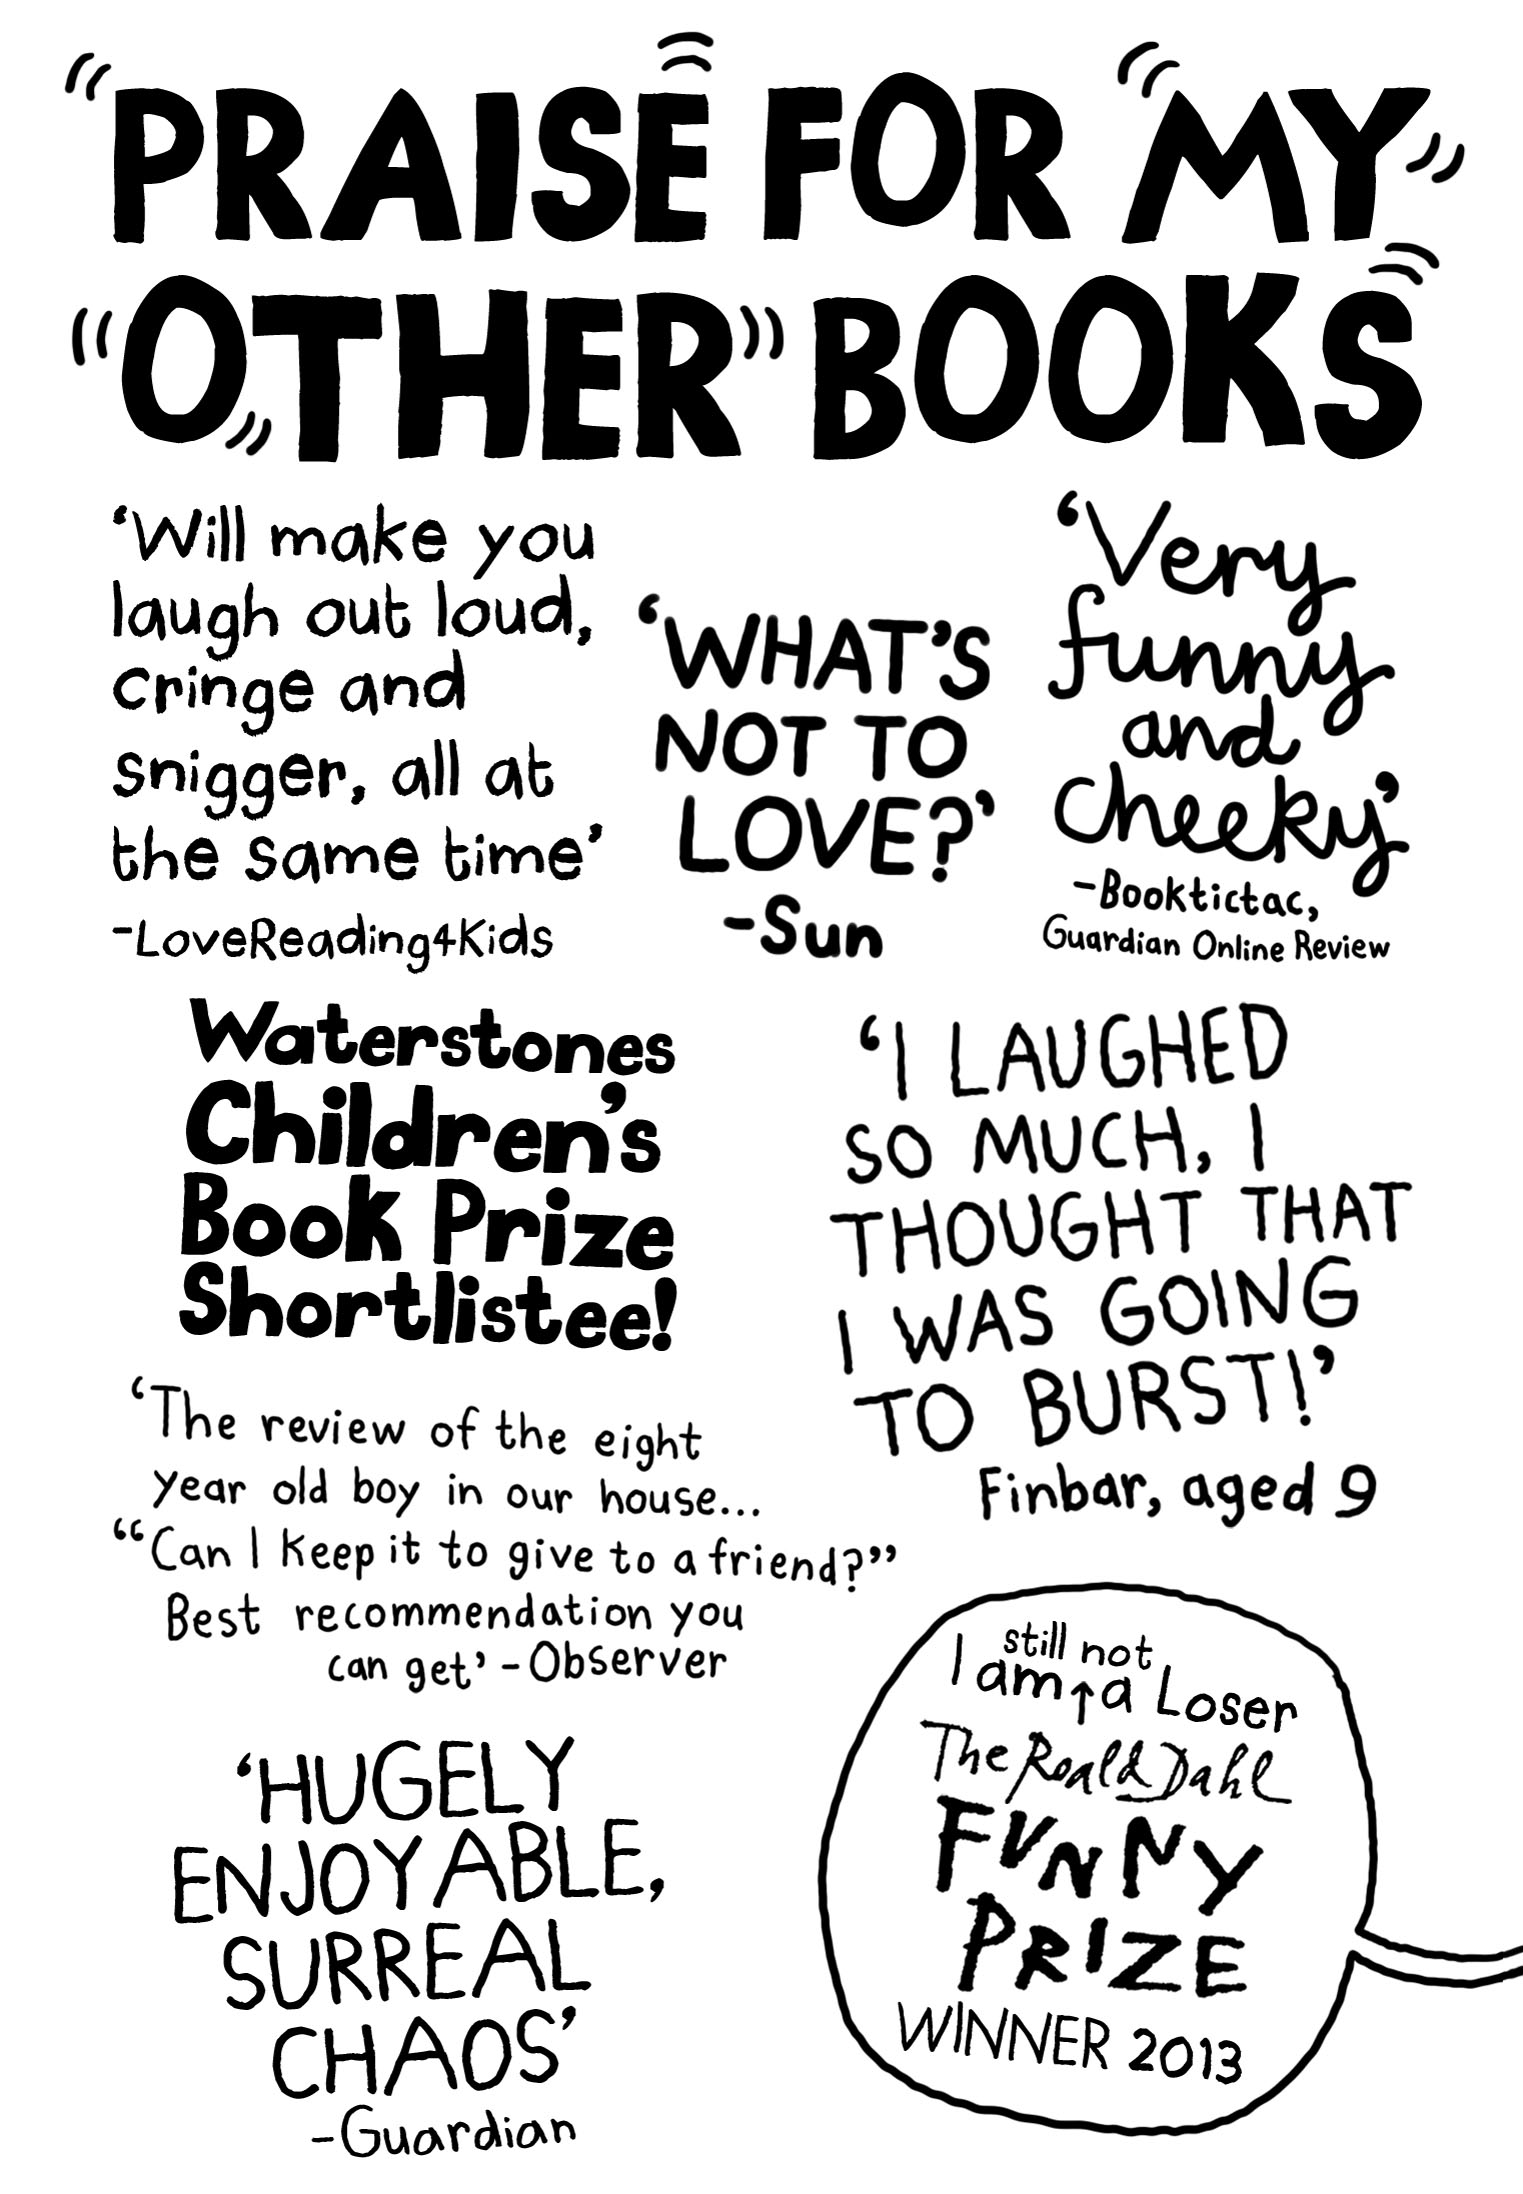 PRAISE FOR MY
OTHER BOOKS
‘Will make you
laugh out loud,
cringe and
snigger, all at
the same time’
-LoveReading4Kids
‘WHAT’S
NOT TO
LOVE?’
-Sun
‘Very
funny
and
cheeky’
-Booktictac,
Guardian Online Review
Waterstones
Children’s
Book Prize
Shortlistee!
‘I LAUGHED
SO MUCH, I
THOUGHT THAT
I WAS GOING
TO BURST!’
Finbar, aged 9
‘The review of the eight
year old boy in our house...
“Can I keep it to give to a friend?”
Best recommendation you
can get’ -Observer
‘HUGELY
ENJOYABLE,
SURREAL
CHAOS’
-Guardian
still not
I am ↑ a Loser
The Roald Dahl
FUNNY
PRIZE
WINNER 2013